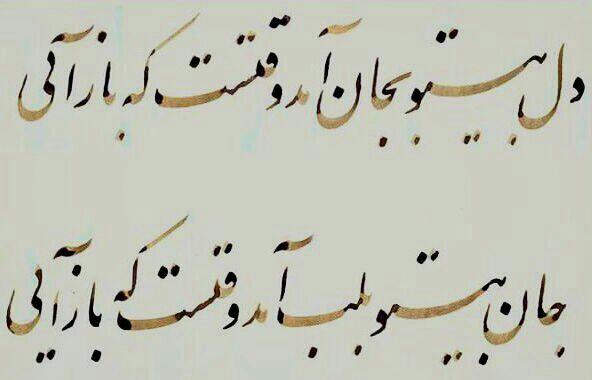 دل بیتو بجان آمد وقتست که بازآئی
جان بیتو بلب آمد وقتست که بازآیی